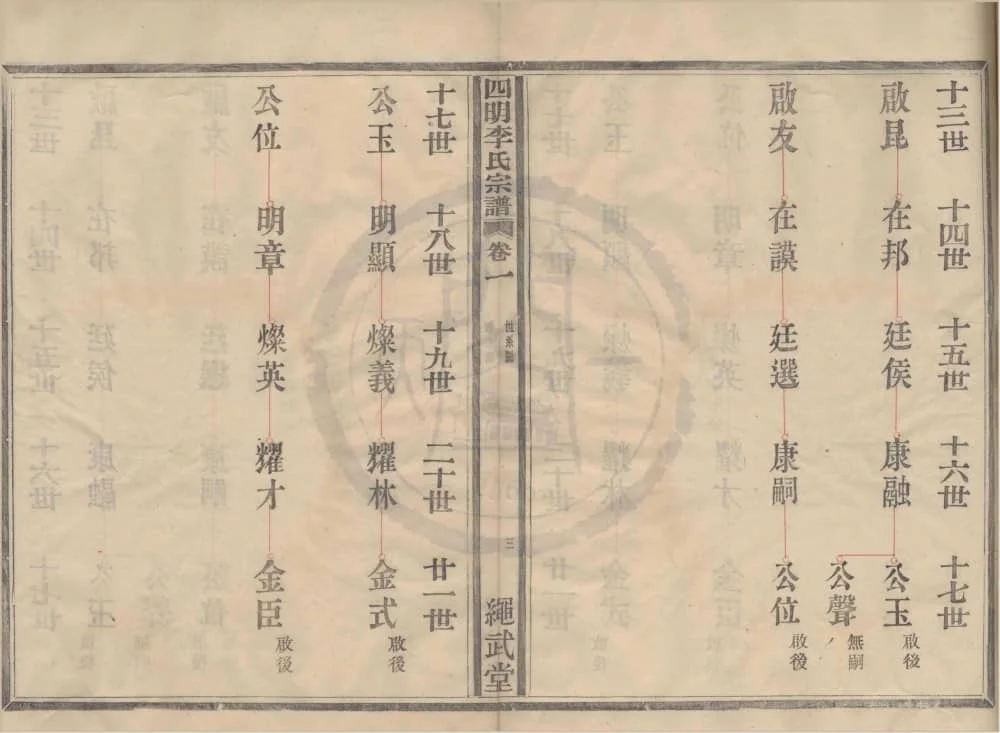 十三世
啟昆
啟友
十四世
在邦
在謨
十五世
廷俟
廷選
十六世
康融
康嗣
十七世
公玉 啟後
公聲 無嗣
公位 啟後
四明李氏宗譜
卷一
世系圖
三
繩武堂
十七世
公玉
公位
十八世
明顯
明章
十九世
燦義
燦英
二十世
耀林
耀才
廿一世
金式 啟後
金臣 啟後